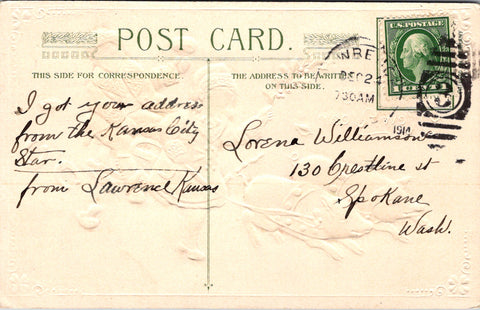 POST CARD.
THIS SIDE FOR CORRESPONDENCE.
THE ADDRESS TO BE WRITTEN
ON THIS SIDE.
U.S. POSTAGE
1 CENT 1
DEC 24
730AM
1914
I got your address
from the Kansas City
Star.
from Lawrence Kansas
Lorena Williamson
130 Crestline st
Spokane
Wash.